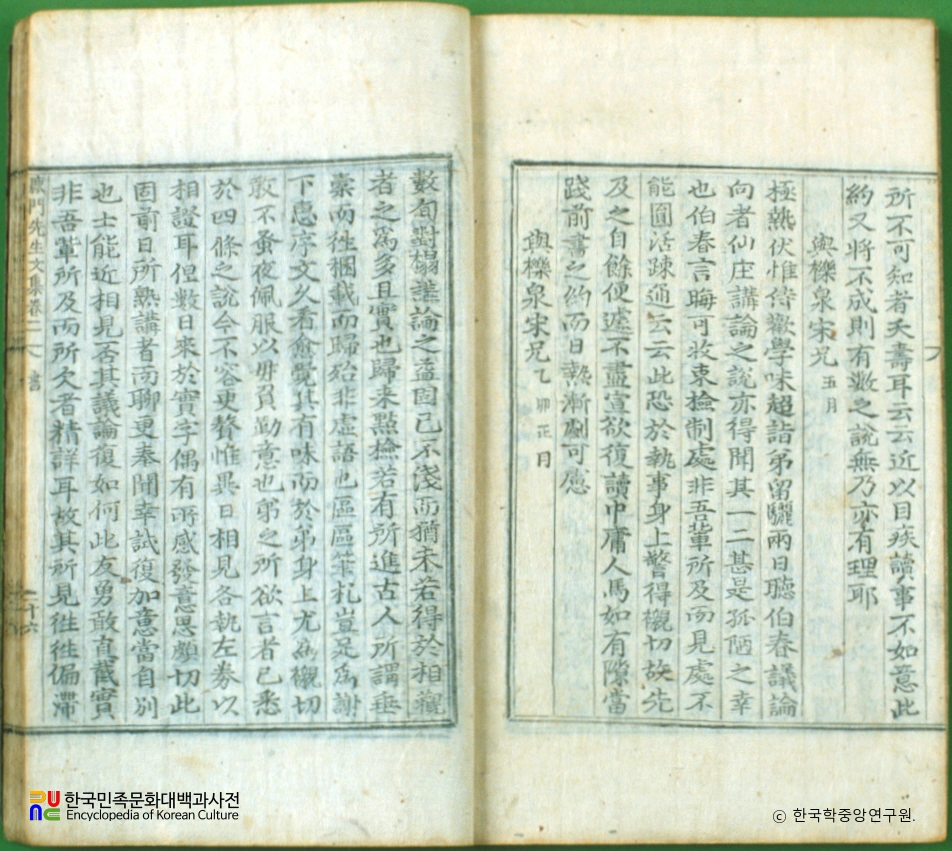 所不可知者夭壽耳云云近以目疾讀事不如意此
約又將不成則有數之說無乃亦有理耶
與櫟泉宋兄 五月
極熱伏惟侍歡學味超詣弟留驪兩日聽伯春議論
向者仙庄講論之說亦得聞其一二甚是孤陋之幸
也伯春言晦可收束檢制處非吾輩所及而見處不
能圓活疎通云云此恐於執事身上警得襯切故先
及之自餘便遽不盡宣欲復讀中庸人馬如有隙當
踐前書之約而日熱漸劇可慮
與櫟泉宋兄 乙卯正月
數旬對榻講論之益固已不淺而猶未若得於相觀
者之爲多且實也歸來點檢若有所進古人所謂垂
橐而徃稛載而歸殆非虛語也區區筆札豈足爲謝
下惠序文久看愈覺其有味而於弟身上尤爲襯切
敢不蚤夜佩服以毋負勤意也弟之所欲言者已悉
於四條之說今不容更贅惟異日相見各執左券以
相證耳但數日來於實字偶有所感發意思頗切此
固前日所熟講者而聊更奉聞幸試復加意當自別
也士能近相見否其議論復如何此友勇敢直截實
非吾輩所及而所欠者精詳耳故其所見徃徃偏滯
門先生文集卷二 書
二十六
한국민족문화대백과사전
Encyclopedia of Korean Culture
ⓒ 한국학중앙연구원.